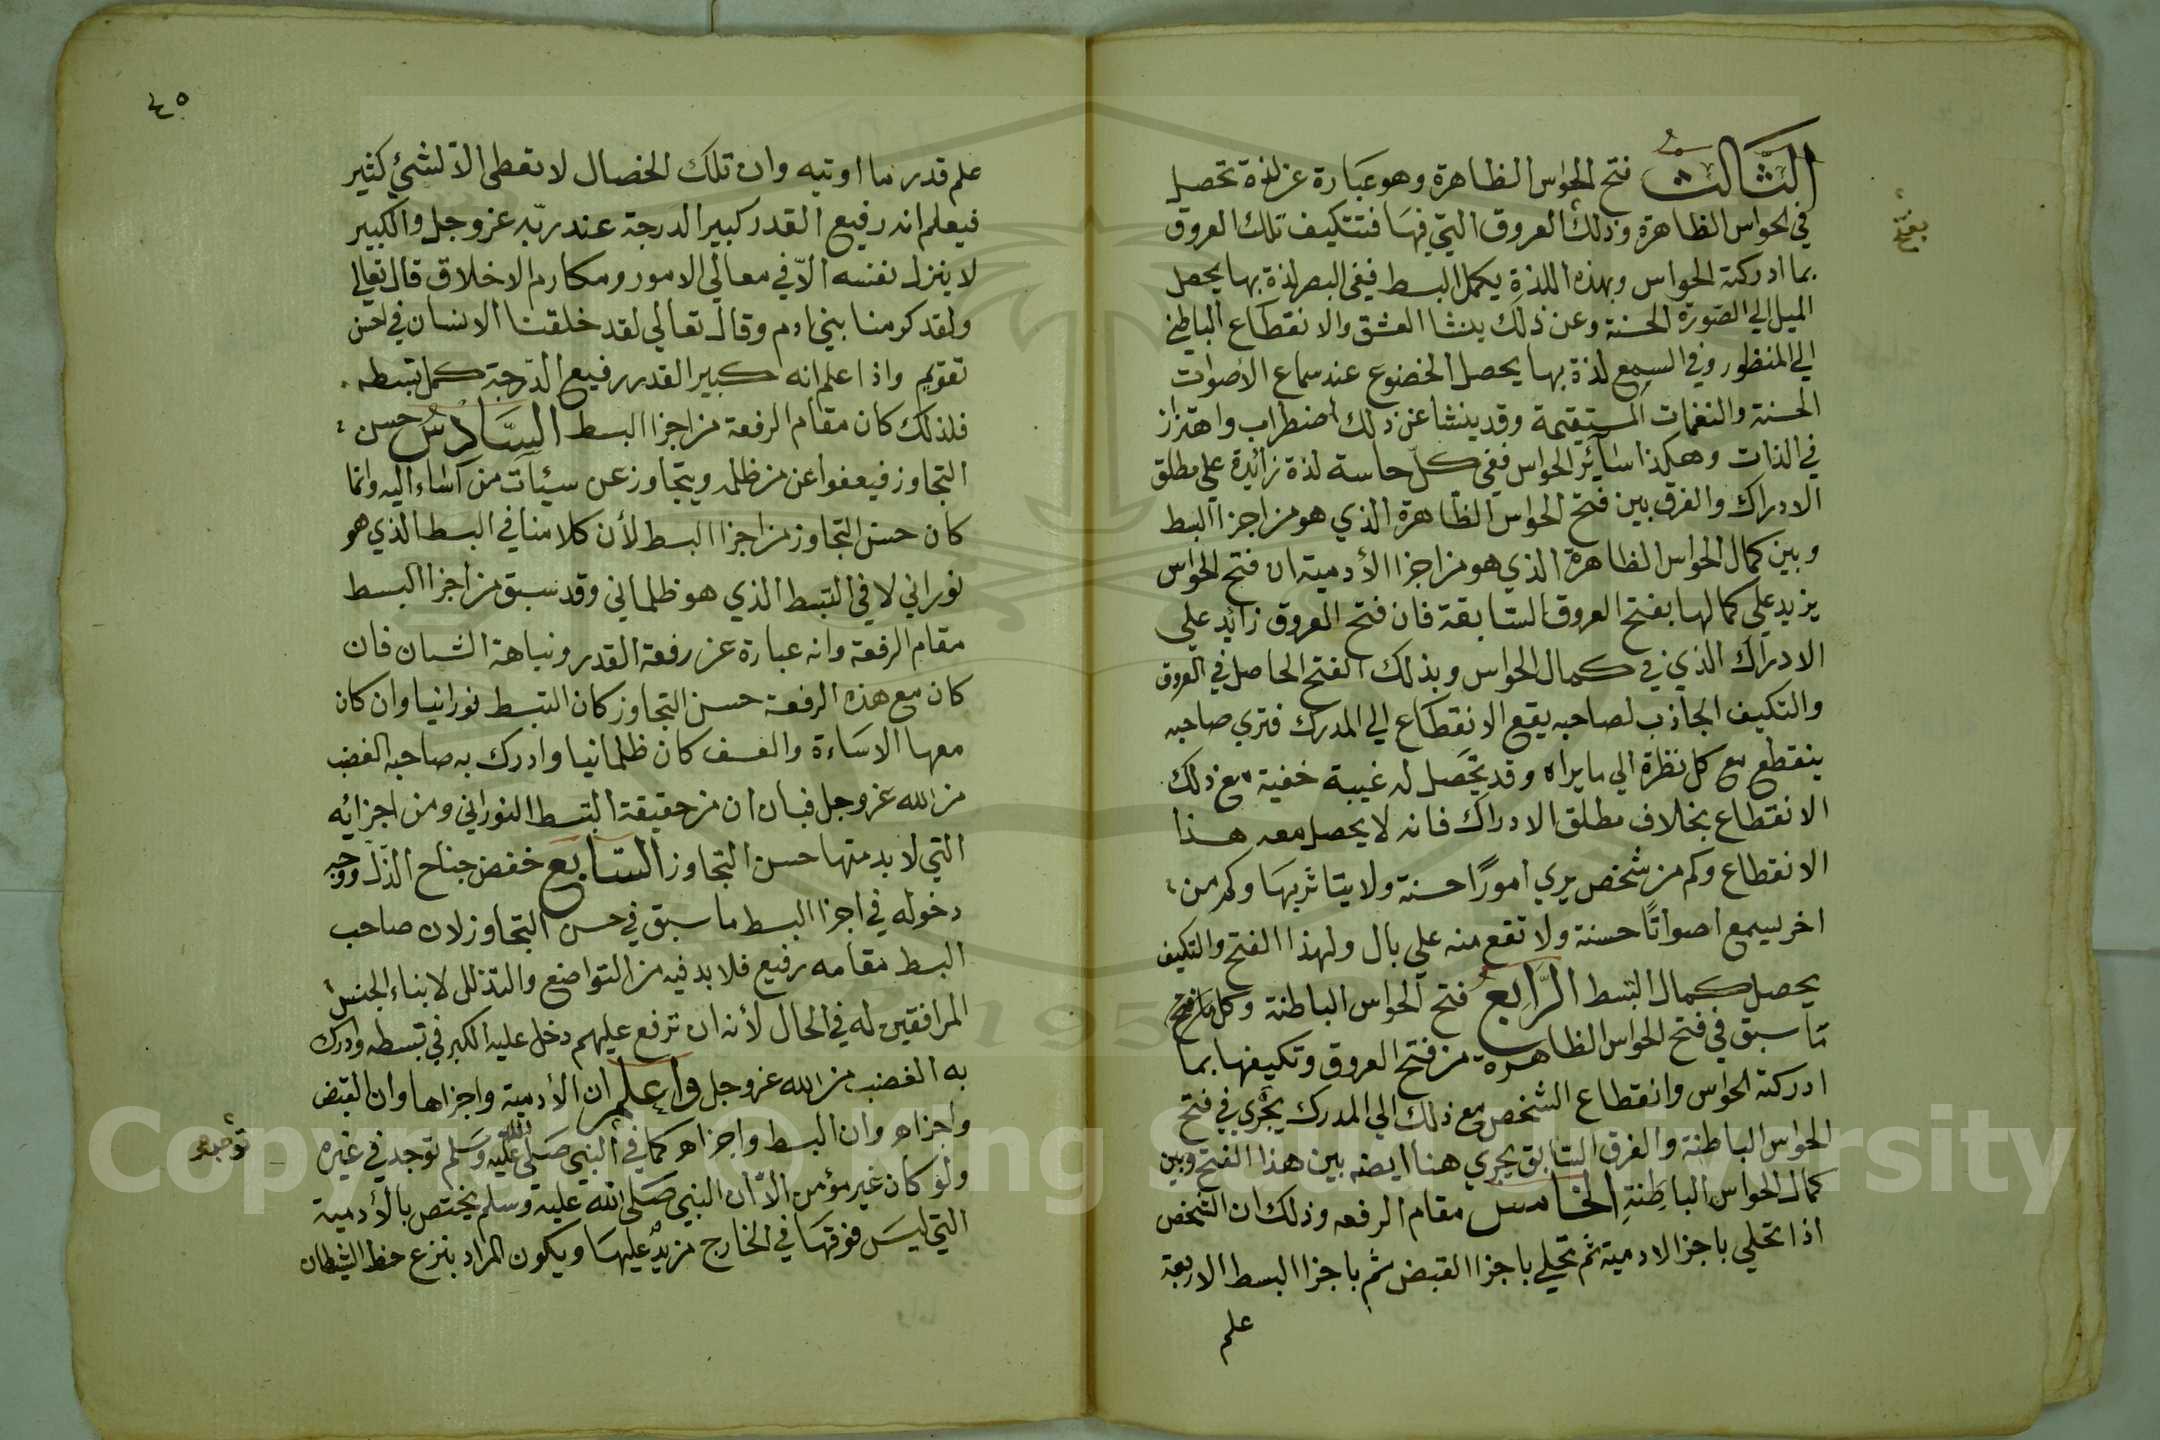 الثالث فتح الحواس الظاهرة وهو عبارة عن لذة تحصيل
في الحواس الظاهرة وذلك العروق التي فيها فتتكيف تلك العروق
بما ادركته الحواس وبهذه اللذة يكمل البسط ففي البصر لذة بها يحصل
الميل الي الصورة الحسنة وعن ذلك ينشا العشق والانقطاع الباطني
الي المنظور وفي السمع لذة بها يحصل الخضوع عند سماع الأصوات
الحسنة والنغمات المستقيمة وقد ينشا عن ذلك اضطراب واهتزاز
في الذات وهكذا سآئر الحواس ففي كل حاسة لذة زائدة علي مطلق
الادراك والفرق بين فتح الحواس الظاهرة الذي هو من اجزا البسط
وبين كمال الحواس الظاهرة الذي هو من اجزا الأدمية ان فتح الحواس
يزيد علي كمالها بفتح العروق السابقة فان فتح العروق زائد علي
الادراك الذي في كمال الحواس وبذلك الفتح الحاصل في العروق
والتكيف الجاذب لصاحبه يقع الانقطاع الي المدرك فتري صاحبه
ينقطع مع كل نظرة الي ما يراه وقد تحصل له غيبة خفية مع ذلك
الانقطاع بخلاف مطلق الادراك فانه لا يحصل معه هذا
الانقطاع وكم من شخص يري امورًا حسنة ولا يتاثر بها وكم من
اخر يسمع اصواتًا حسنة ولا تقع منه علي بال ولهذا الفتح والتكيف
يحصل كمال البسط الرابع فتح الحواس الباطنة وكل ما
سبق في فتح الحواس الظاهرة من فتح العروق وتكيفها بما
ادركته الحواس وانقطاع الشخص مع ذلك الي المدرك يجري في فتح
الحواس الباطنة والفرق السابق يجري هنا ايضه بين هذا الفتح وبين
كمال الحواس الباطنة الخامس مقام الرفعه وذلك ان الشخص
اذا تحلي باجزا الادمية ثم تحلي باجزا القبض ثم باجزا البسط الاربعة
علم
٤٥
علم قدر ما اوتيه وان تلك الخصال لا تعطي الا لشيء كثير
فيعلم انه رفيع القدر كبير الدرجة عند ربّه عز وجل والكبير
لا ينزل نفسه الّا في معالي الامور ومكارم الاخلاق قال تعالي
ولقد كرمنا بني ادم وقال تعالي لقد خلقنا الانسان في احسن
تقويم واذا علم انه كبير القدر رفيع الدّرجة كمل تبسطه
فلذلك كان مقام الرفعة من اجزا البسط السّادسُ حسن
التجاوز فيعفوا عن من ظلمه ويتجاوز عن سيئات من اساء اليه وانما
كان حسن التجاوز من اجزا البسط لأن كلامنا في البسط الذي هو
نوراني لا في التبسط الذي هو ظلماني وقد سبق من اجزا البسط
مقام الرفعة وانه عبارة عن رفعة القدر ونباهة الشان فان
كان مع هذه الرفعة حسن التجاوز كان التبسط نورانيا وان كان
معها الاساءة والعسف كان ظلمانيا وادرك به صاحبه الغضب
من الله عز وجل فبان ان من حقيقة البسط النوراني ومن اجزائه
التي لا بد منها حسن التجاوز السابع خفض جناح الذل ووجه
دخوله في اجزا البسط ما سبق في حسن التجاوز لان صاحب
البسط مقامه رفيع فلا بد فيه من التواضع والتذلل لابناء الجنس
المرافقين له في الحال لأنه ان ترفع عليهم دخل عليه الكبر في تبسطه وادرك
به الغضب من الله عز وجل واعلم ان الأدمية واجزاها وان القبض
واجزاه وان البسط واجزاه كما في النبي صَلي الله عليه وسلم توجد في غيره
ولو كان غير مؤمن الاّ ان النبي صَلي الله عليه وسلم يختص بالأدمية
التي ليس فوقها في الخارج مزيد عليها ويكون المراد بنزع حظ الشيطان